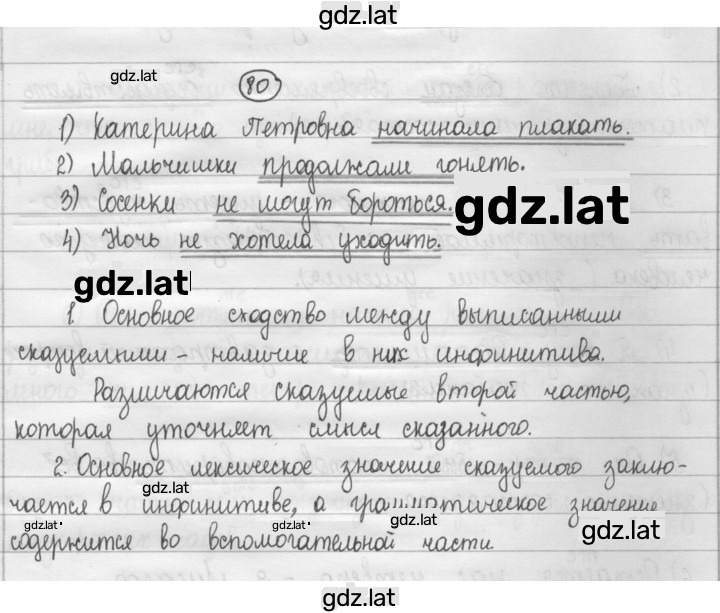 gdz.lat
gdz.lat
80
1) Катерина Петровна начинала плакать.
2) Мальчишки продолжали гонять.
3) Сосенки не могут бороться.
gdz.lat
4) Ночь не хотела уходить.
gdz.lat
1. Основное сходство между выписанными
сказуемыми - наличие в них инфинитива.
Различаются сказуемые второй частью,
которая уточняет смысл сказанного.
2. Основное лексическое значение сказуемого заклю-
gdz.lat
чается в инфинитиве, а грамматическое значение
gdz.lat
gdz.lat
gdz.lat
содержится во вспомогательной части
gdz.lat